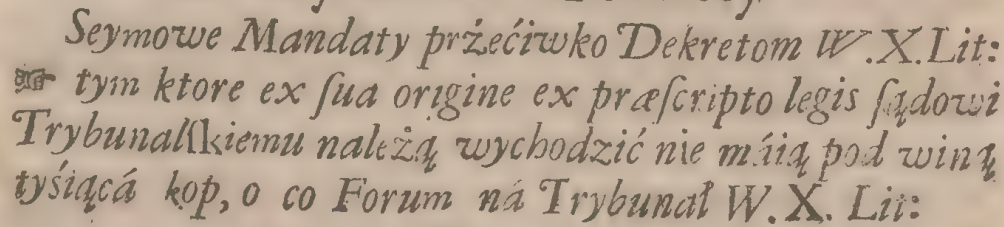 Seymowe Mandaty przećiwko Dekretom W.X.Lit:
☞ tym ktore ex ſua origine ex præſcripto legis ſądowi
Trybunalſkiemu należą wychodzić nie máią pod winą
tyśiącá kop, o co Forum ná Trybunał W.X. Lit: